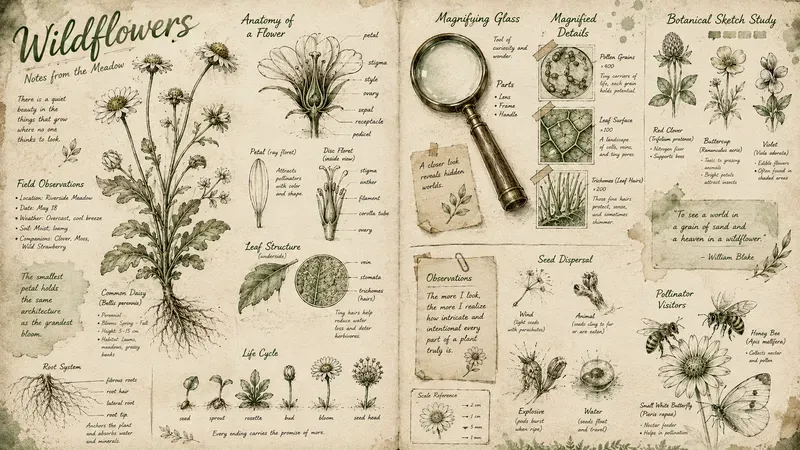 Wildflowers
Notes from the Meadow
There is a quiet
beauty in the
things that grow
where no one
thinks to look.
Field Observations
• Location: Riverside Meadow
• Date: May 18
• Weather: Overcast, cool breeze
• Soil: Moist, loamy
• Companions: Clover, Moss,
Wild Strawberry
The smallest
petal holds
the same
architecture
as the grandest
bloom.
Common Daisy
(Bellis perennis)
• Perennial
• Bloom: Spring - Fall
• Height: 5-15 cm
• Habitat: Lawns,
meadows, grassy
banks
Root System
fibrous roots
root hair
lateral root
root tip
Anchors the plant
and absorbs water
and minerals.
Anatomy of
a Flower
petal
stigma
style
ovary
sepal
receptacle
pedicel
Petal (ray floret)
Attracts
pollinators
with color
and shape.
Disc Floret
(inside view)
stigma
anther
filament
corolla tube
ovary
Leaf Structure
(underside)
vein
stomata
trichomes
(hairs)
Tiny hairs help
reduce water
loss and deter
herbivores.
Life Cycle
seed
sprout
rosette
bud
bloom
seed head
Every ending carries the promise of more.
Magnifying Glass
Tool of
curiosity and
wonder.
Parts
• Lens
• Frame
• Handle
A closer look
reveals hidden
worlds.
Magnified
Details
Pollen Grains
×400
Tiny carriers of
life, each grain
holds potential.
Leaf Surface
×100
A landscape
of cells, veins,
and tiny pores.
Trichomes (Leaf Hairs)
×200
These fine hairs
protect, sense,
and sometimes
shimmer.
Botanical Sketch Study
Red Clover
(Trifolium pratense)
• Nitrogen fixer
• Supports bees
Buttercup
(Ranunculus acris)
• Toxic to grazing
animals
• Bright petals
attract insects
Violet
(Viola odorata)
• Edible flowers
• Often found in
shaded areas
"To see a world in
a grain of sand and
a heaven in a wildflower."
- William Blake
Observations
The more I look,
the more I realize
how intricate and
intentional every
part of a plant
truly is.
Scale Reference
2 cm
1 cm
5 mm
1 mm
Seed Dispersal
Wind
(light seeds
with parachutes)
Animal
(seeds cling to fur
or are eaten)
Explosive
(pods burst
when ripe)
Water
(seeds float
and travel)
Pollinator
Visitors
Honey Bee
(Apis mellifera)
• Collects nectar
and pollen
Small White Butterfly
(Pieris rapae)
• Nectar feeder
• Helps in pollination